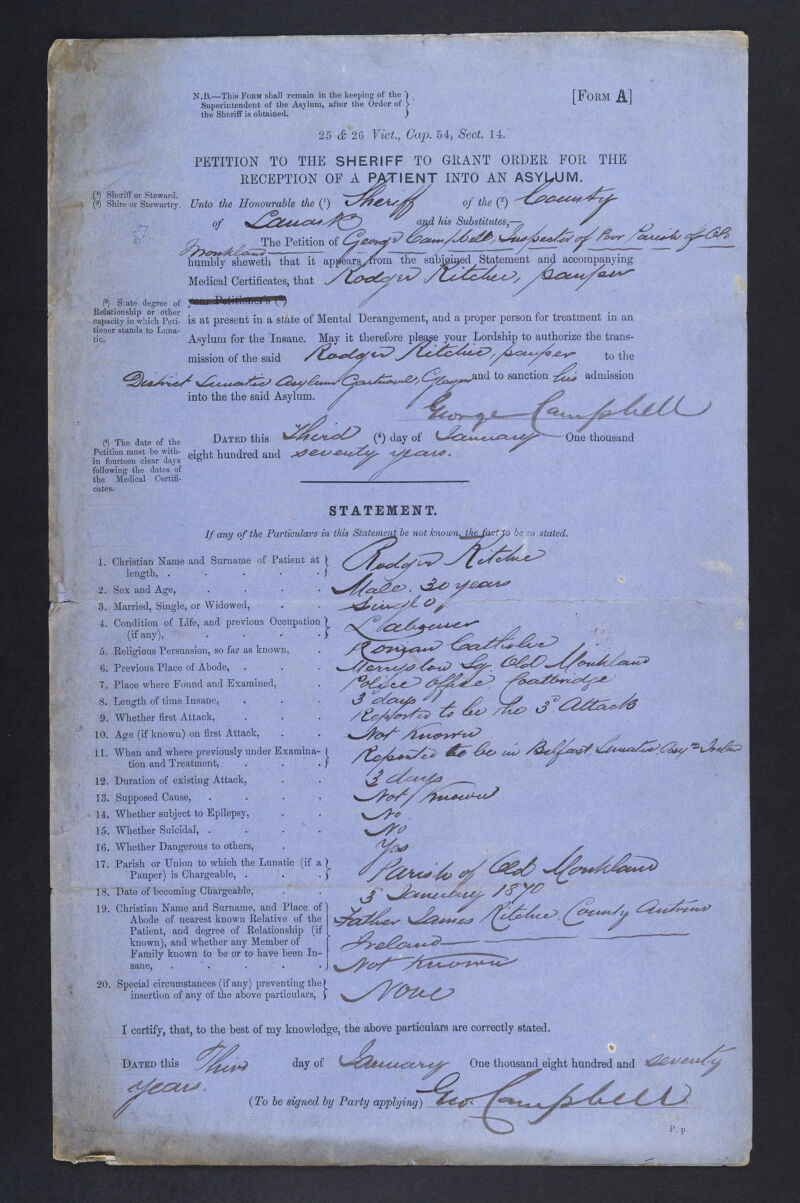 N.B.—This Form shall remain in the keeping of the
Superintendent of the Asylum, after the Order of
the Sheriff is obtained.
[Form A]
25 & 26 Vict., Cap. 54, Sect. 14.
PETITION TO THE SHERIFF TO GRANT ORDER FOR THE
RECEPTION OF A PATIENT INTO AN ASYLUM.
(¹) Sheriff or Steward.
(²) Shire or Stewartry.
Unto the Honourable the (¹) Sheriff of the (²) County
of Lanark and his Substitutes,—
The Petition of George Campbell, Inspector of Poor Parish of Old
Monkland
humbly sheweth that it appears from the subjoined Statement and accompanying
Medical Certificates, that Rodger Ritchie, pauper
your Petitioner's (³)
(³) State degree of
Relationship or other
capacity in which Peti-
tioner stands to Luna-
tic.
is at present in a state of Mental Derangement, and a proper person for treatment in an
Asylum for the Insane. May it therefore please your Lordship to authorize the trans-
mission of the said Rodger Ritchie, pauper to the
District Lunatic Asylum Gartnavel, Glasgow and to sanction his admission
into the the said Asylum.
George Campbell
(⁴) The date of the
Petition must be with-
in fourteen clear days
following the dates of
the Medical Certifi-
cates.
Dated this Third (⁴) day of January One thousand
eight hundred and seventy years.
STATEMENT.
If any of the Particulars in this Statement be not known, the fact to be so stated.
1. Christian Name and Surname of Patient at
length, . Rodger Ritchie
2. Sex and Age, Male. 30 years
3. Married, Single, or Widowed, Single
4. Condition of Life, and previous Occupation
(if any), Labourer
5. Religious Persuasion, so far as known, Roman Catholic
6. Previous Place of Abode, Merryston Sq Old Monkland
7. Place where Found and Examined, Police Office Coatbridge
8. Length of time Insane, 3 days
9. Whether first Attack, Reported to be the 3d Attack
10. Age (if known) on first Attack, Not Known
11. When and where previously under Examina-
tion and Treatment, Reported to be in Belfast Lunatic Asym Ireland
12. Duration of existing Attack, 3 days
13. Supposed Cause, Not Known
14. Whether subject to Epilepsy, No
15. Whether Suicidal, No
16. Whether Dangerous to others, Yes
17. Parish or Union to which the Lunatic (if a
Pauper) is Chargeable, Parish of Old Monkland
18. Date of becoming Chargeable, 3 January 1870
19. Christian Name and Surname, and Place of
Abode of nearest known Relative of the
Patient, and degree of Relationship (if
known), and whether any Member of
Family known to be or to have been In-
sane, Father James Ritchie County Antrim
Ireland
Not Known
20. Special circumstances (if any) preventing the
insertion of any of the above particulars, None
I certify, that, to the best of my knowledge, the above particulars are correctly stated.
Dated this Third day of January One thousand eight hundred and seventy
years.
(To be signed by Party applying) Geo. Campbell
P. p.